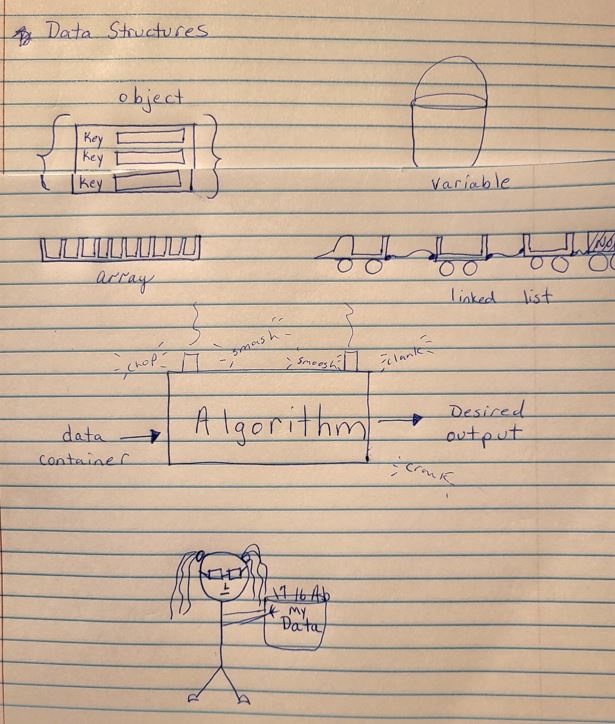 Data Structures
object
Key
Key
Key
variable
array
linked list
chop
smash
smoosh
clank
Algorithm
data
container
Desired
output
crank
17 16 Ab
My
Data